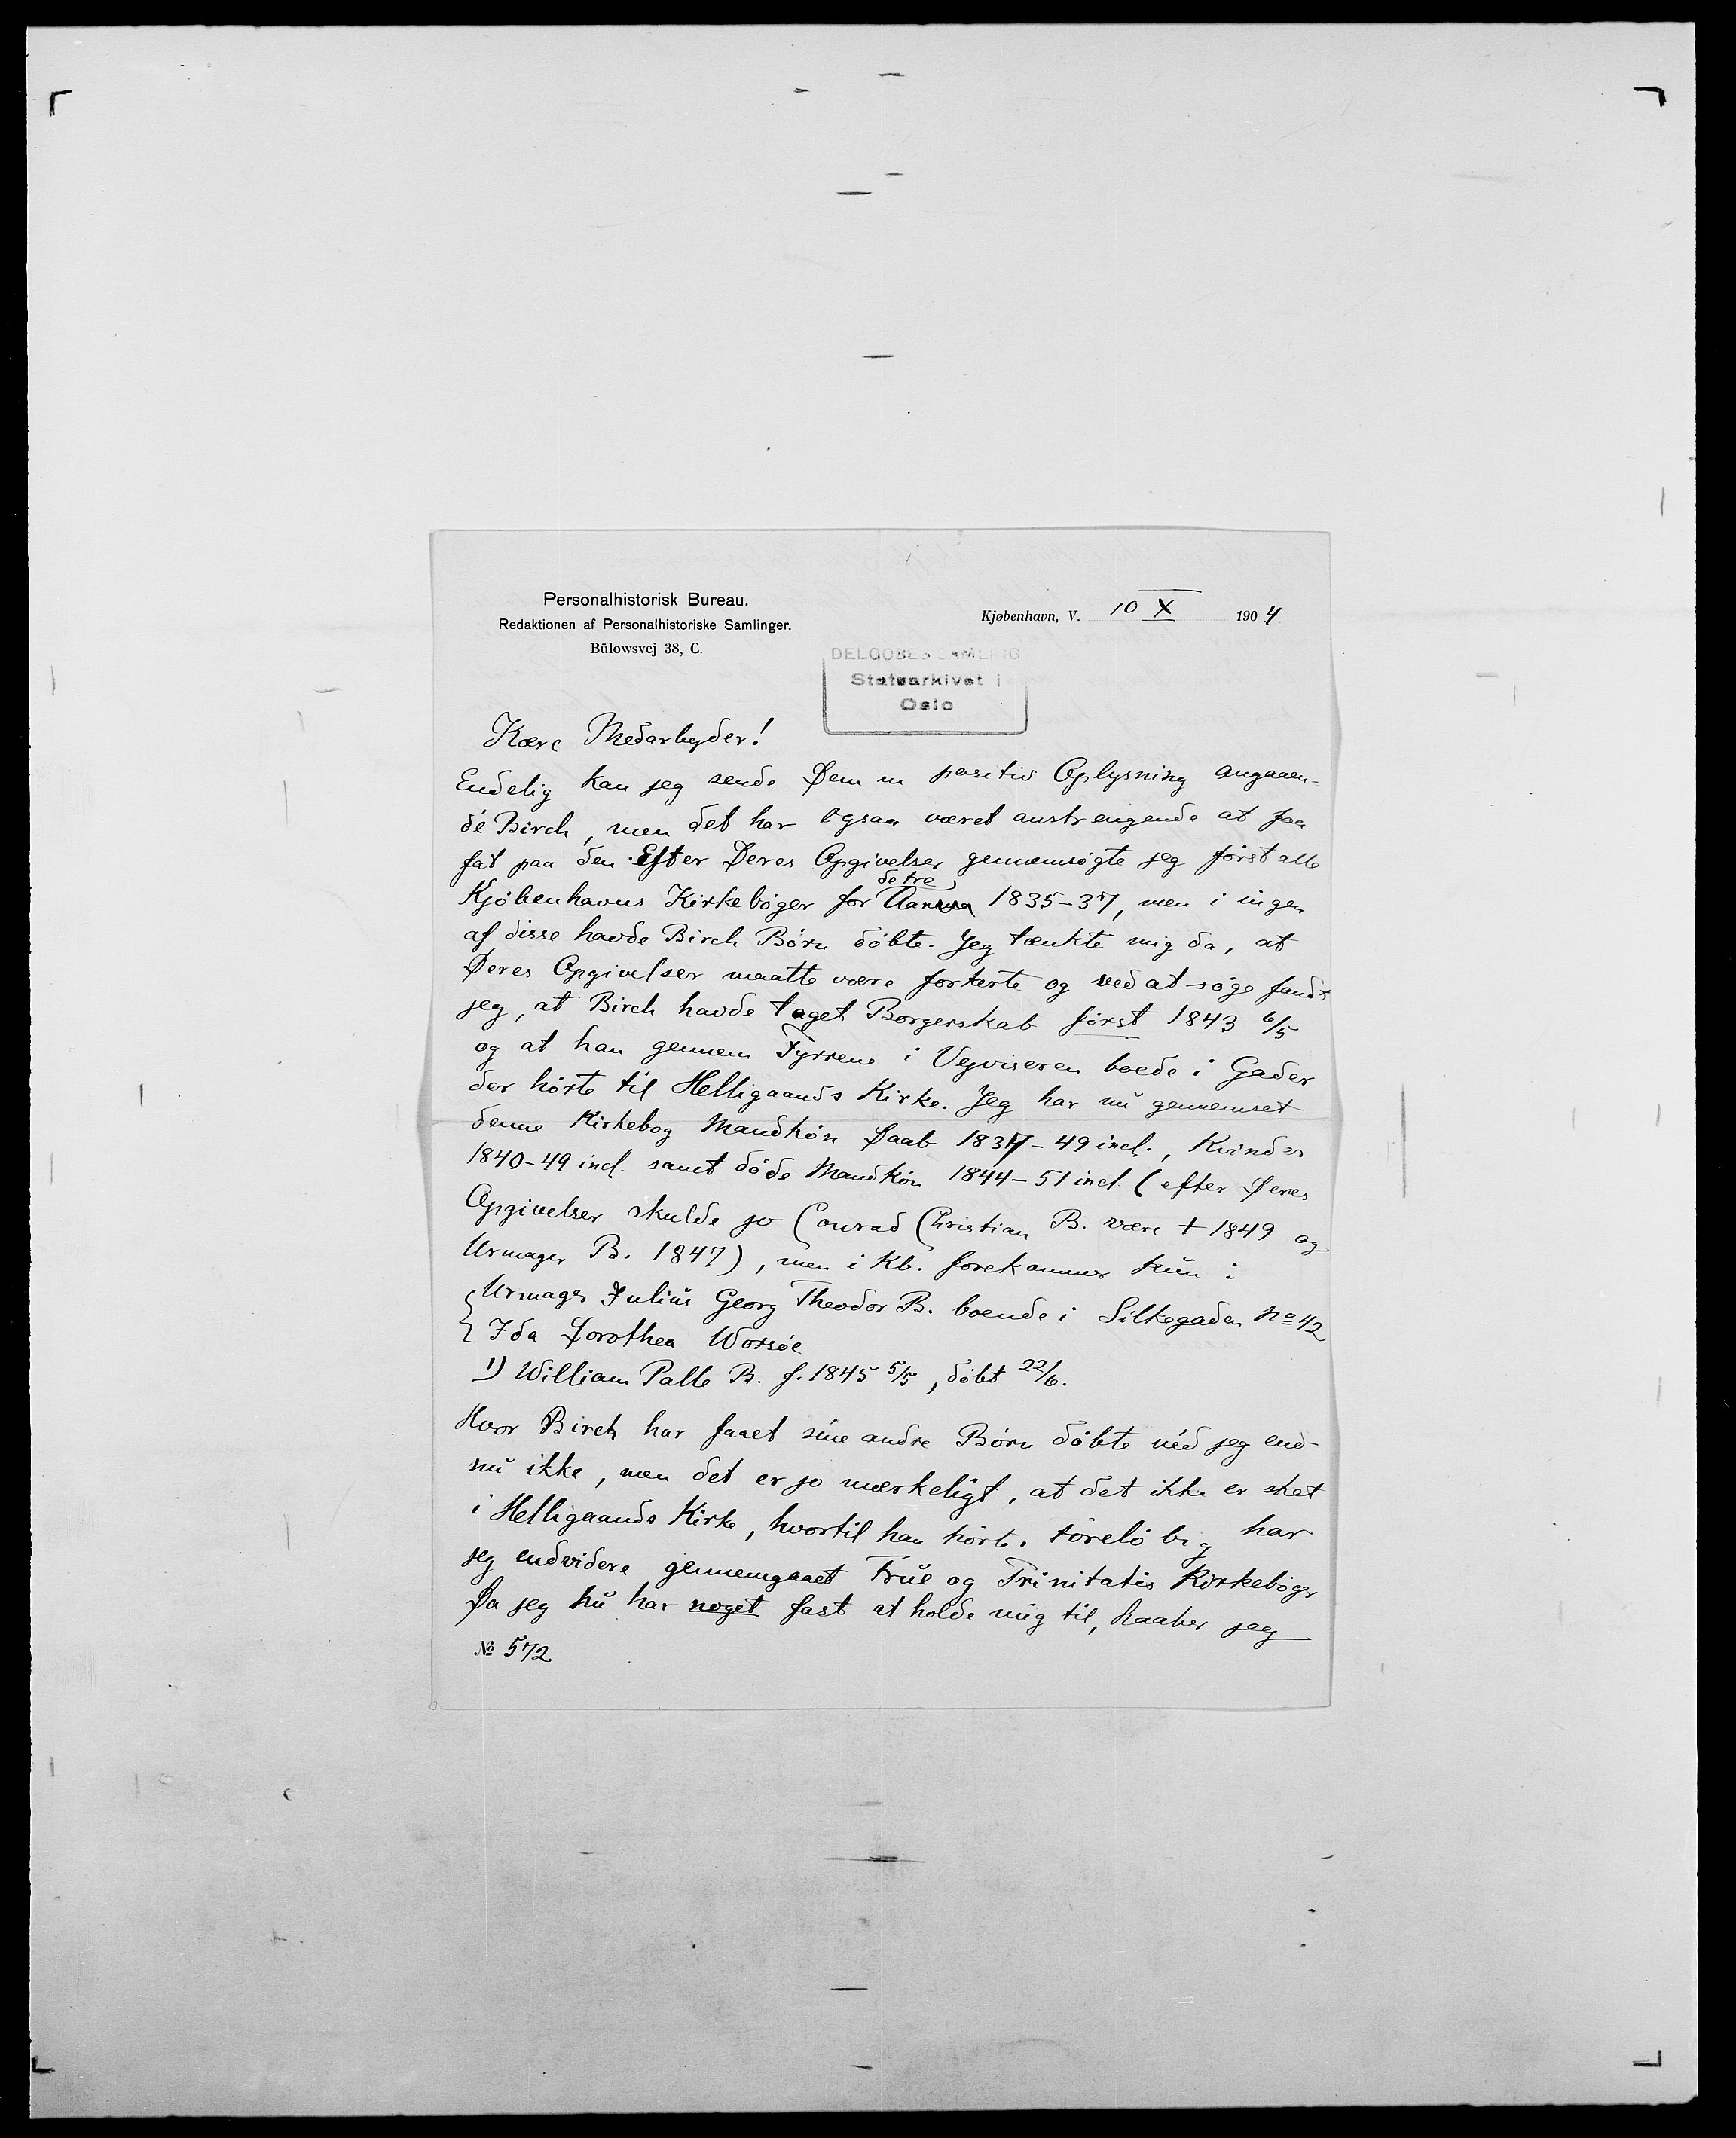 Personalhistorisk Bureau.
Redaktionen af Personalhistoriske Samlinger.
Bülowsvej 38, C.
Kjøbenhavn, V. 10 X 1904.
DELGOBES SAMLING
Statsarkivet i
Oslo
Kære Medarbyder!
Endelig kan jeg sende Dem en positiv Oplysning angaaen-
de Birch, men det har ogsaa været anstrengende at faa
fat paa den. Efter Deres Opgivelser gennemsøgte jeg først alle
de tre
Kjøbenhavns Kirkebøger for Aarene 1835-37, men i ingen
af disse havde Birch Børn døbte. Jeg tænkte mig da, at
Deres Opgivelser maatte være forkerte og ved at søge fandt
jeg, at Birch havde taget Borgerskab først 1843 6/5
og at han gennem Fyrrene i Vejviseren boede i Gader
der hørte til Helligaands Kirke. Jeg har nu gennemset
denne Kirkebog Mandkøn Daab 1837-49 incl., Kvinder
1840-49 incl. samt døde Mandkøn 1844-51 incl (efter Deres
Opgivelser skulde jo Conrad Christian B. være + 1849 og
Urmager B. 1847), men i Kb. forekommer kun:
Urmager Julius Georg Theodor B. boende i Silkegaden No 42
Ida Dorothea Worsøe
1) William Palle B. f. 1845 5/5, døbt 22/6.
Hvor Birch har faaet sine andre Børn døbte véd jeg end-
nu ikke, men det er jo mærkeligt, at det ikke er sket
i Helligaands Kirke, hvortil han hørte. Foreløbig har
jeg endvidere gennemgaaet Frue og Trinitatis Kirkebøger
Da jeg nu har noget fast at holde mig til, haaber jeg
№ 572